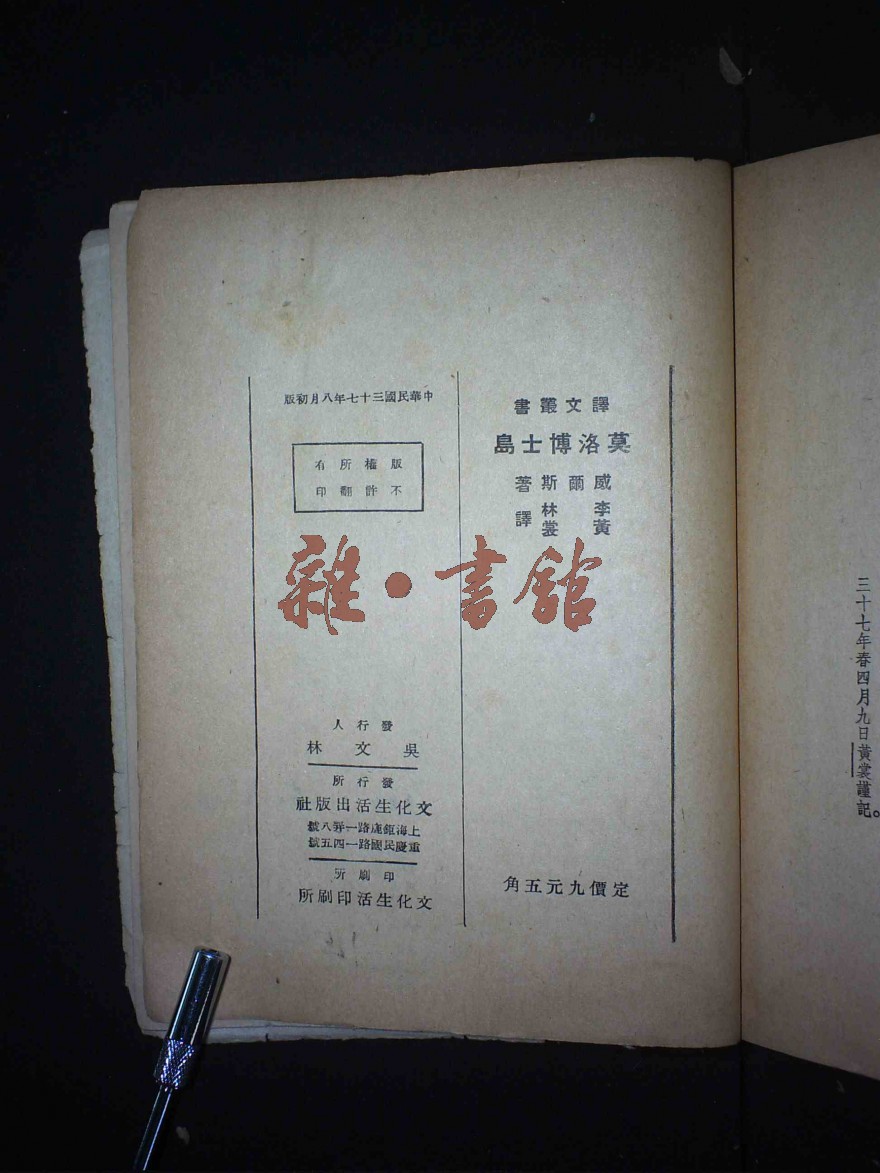 三十七年春四月九日黃裳謹記。
譯文叢書
莫洛博士島
威爾斯著
李林
黃裳
譯
定價九元五角
中華民國三十七年八月初版
版權所有
不許翻印
發行人
吳文林
發行所
文化生活出版社
上海鉅鹿路一弄八號
重慶民國路一四五號
印刷所
文化生活印刷所
雜·書館